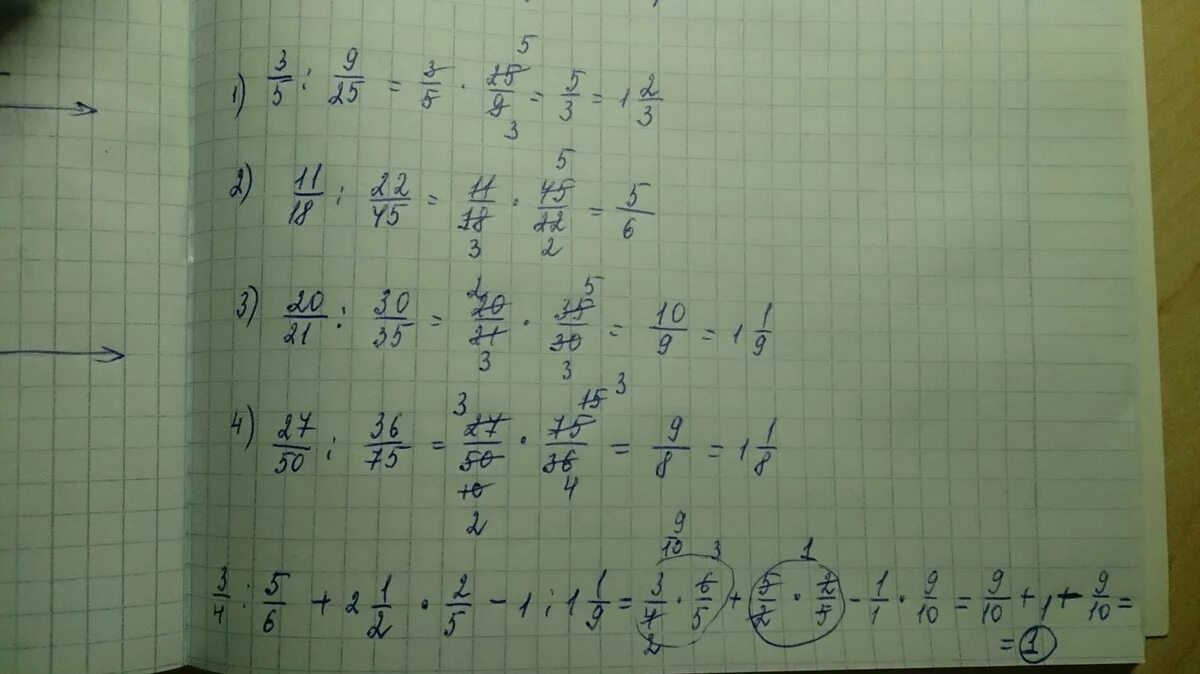 1) 3/5 : 9/25 = 3/5 · 25/9 = 5/3 = 1 2/3
5
3
2) 11/18 : 22/45 = 11/18 · 45/22 = 5/6
5
3 2
3) 20/21 : 30/35 = 20/21 · 35/30 = 10/9 = 1 1/9
2 5
3 3
4) 27/50 : 36/75 = 27/50 · 75/36 = 9/8 = 1 1/8
3 15 3
10 4
2
9/10 3 1
3/4 : 5/6 + 2 1/2 · 2/5 - 1 : 1 1/9 = 3/4 · 6/5 + 5/2 · 2/5 - 1/1 · 9/10 = 9/10 + 1 - 9/10 =
2
= 1